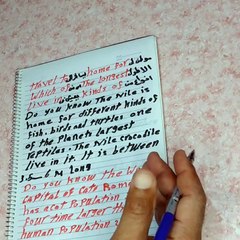 Travel to home for
which of The longest
live in kinds of
Do you know The Nile is
home for different kinds of
fish. birds and turtles one
of the Planets largest
Tartiles. The Nile crocodile
live in it. It is between
5 6 M long
Do you know the
Capital of Cats Rome
has a cat Population
four time larger th
human Population